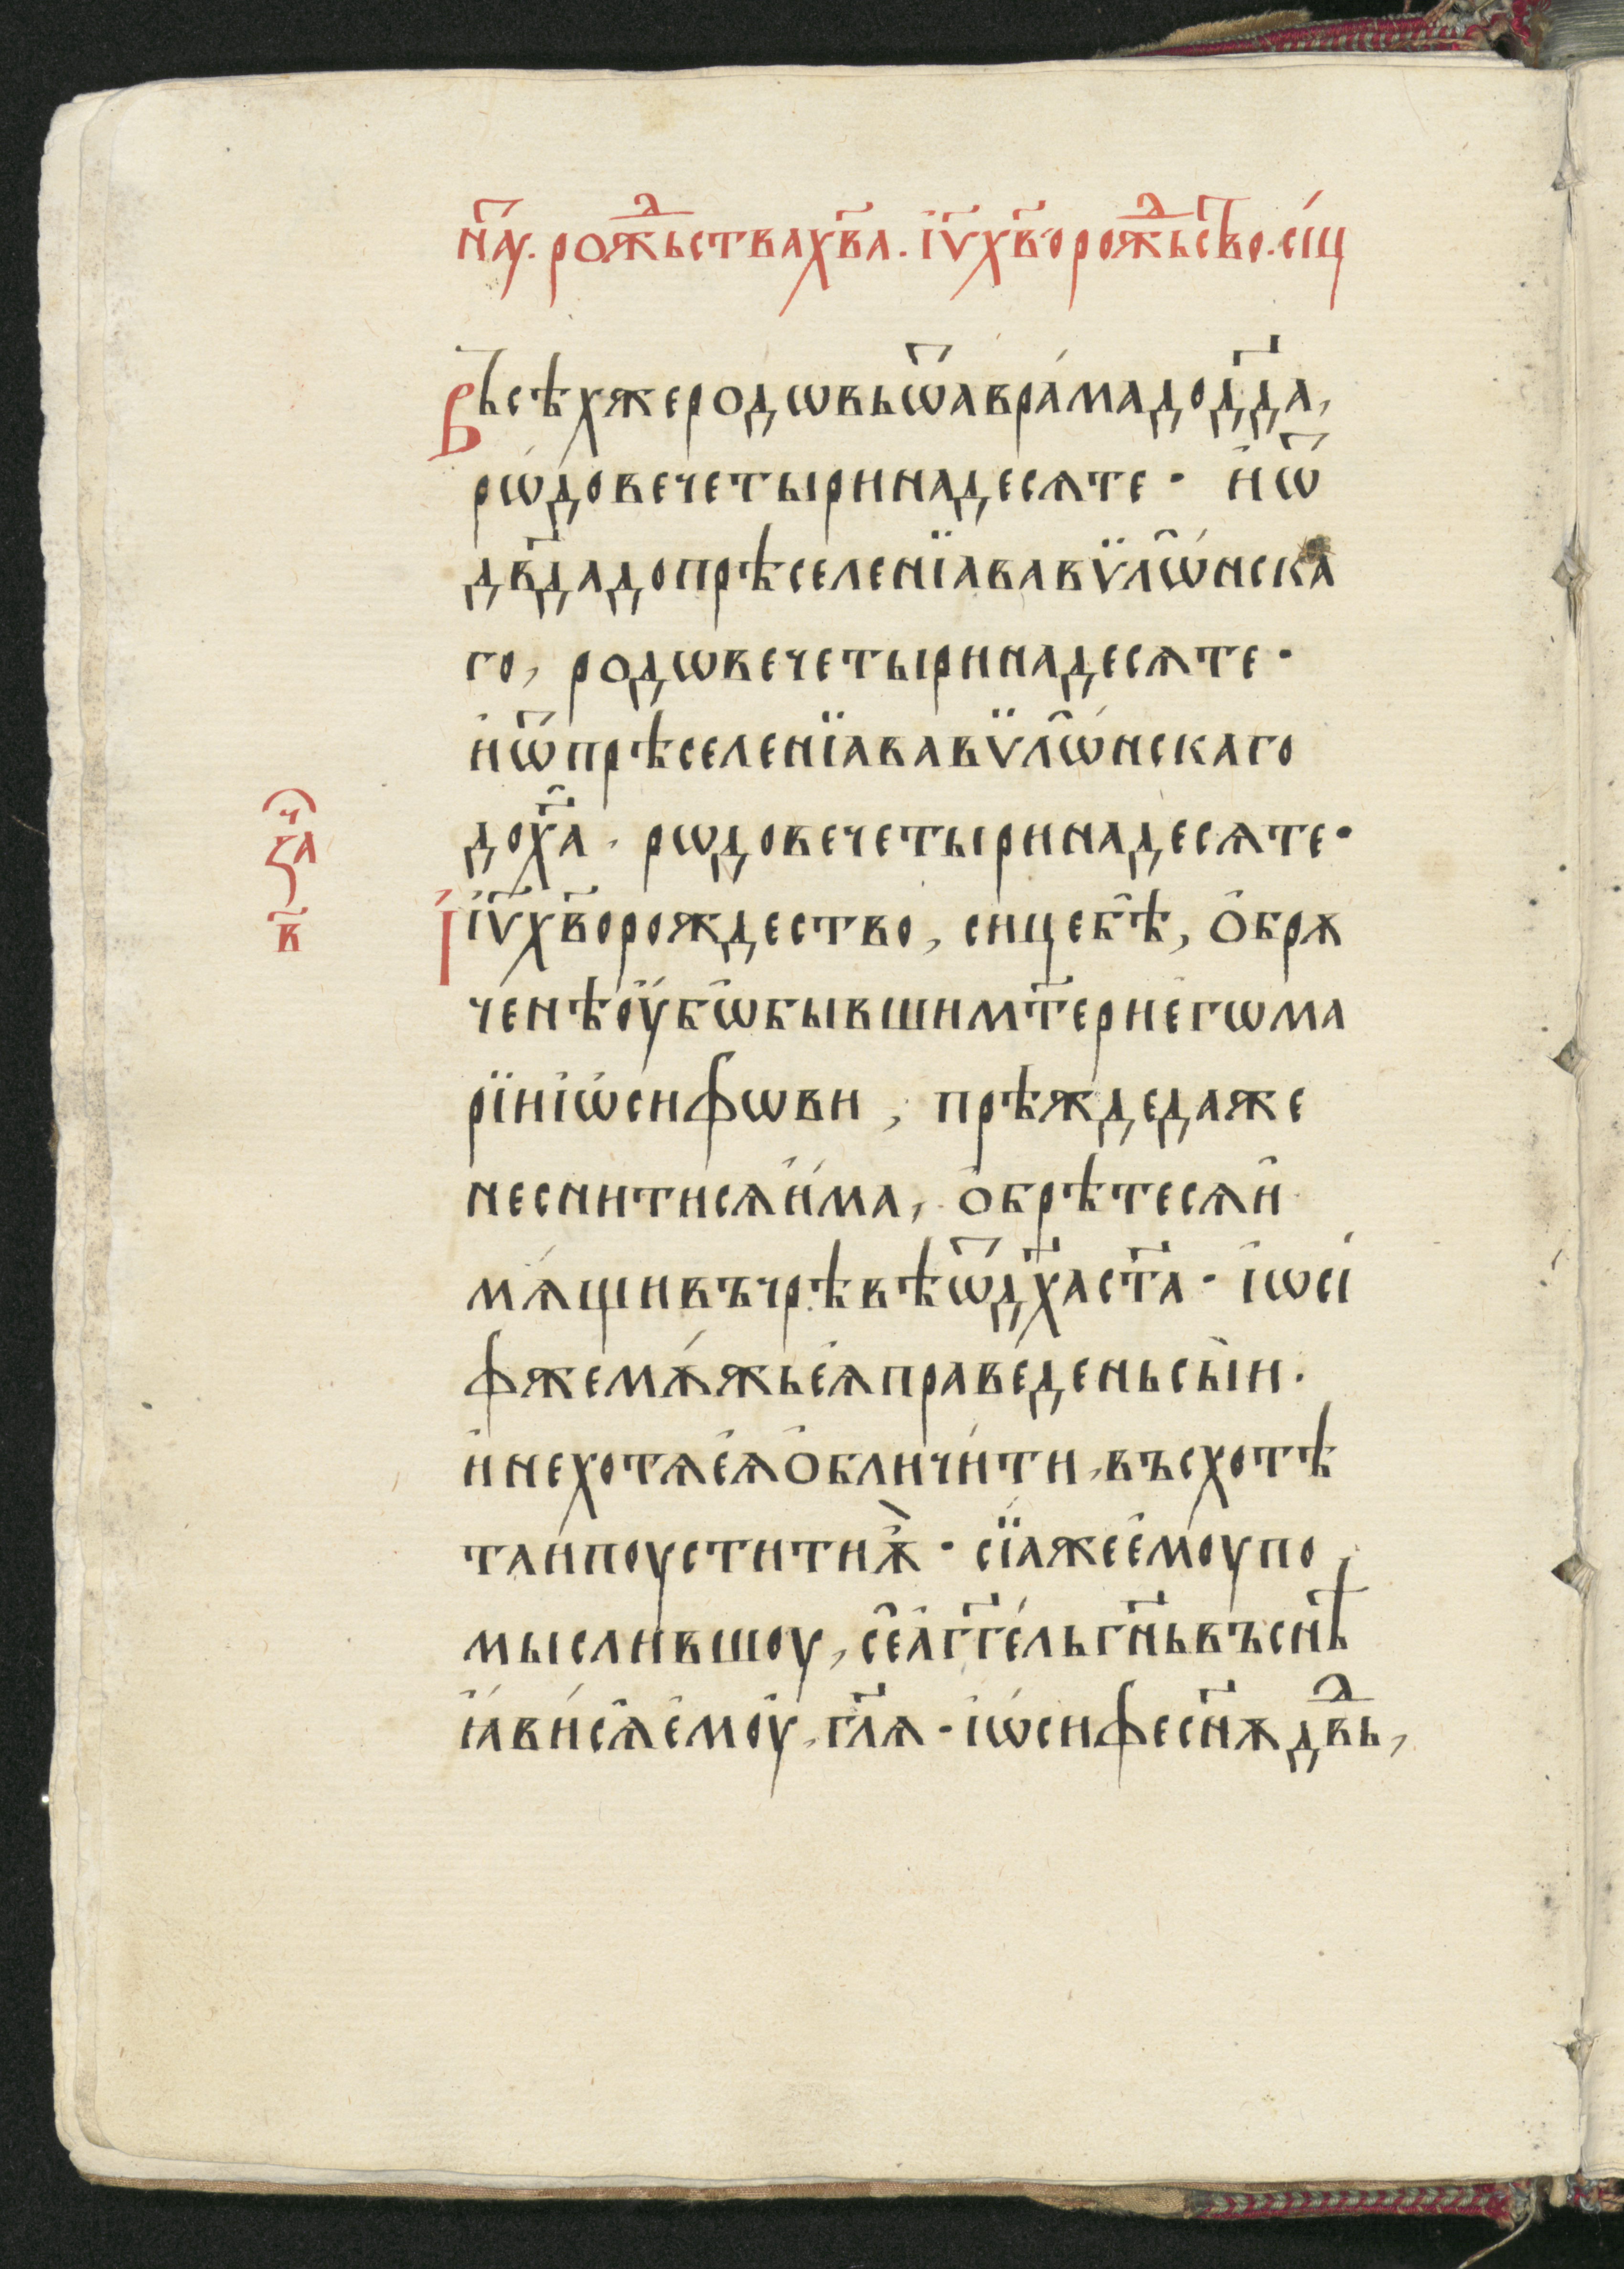 на҃у. рожⷣьства хв҃а. і҆ѵ҃ хв҃о рожⷣьсⷭ҇во. сі́ц
Вьсѣх же родѡвь ѿ авра́ма до дв҃да,
рѡ́дове четыринадесѧте · и҆ ѿ
дв҃да до прѣселенїа вавѷлѡ́нска
го, родѡве четыринадесѧте ·
и҆ ѿ прѣселенїа вавѷлѡ́нскаго
до х҃а · рѡдове четыринадесѧте ·
заⷱ҇
в҃
І҆ѵ҃ хв҃о рождество, сице бѣ̀, ѻ҆брѫ
ченѣ ѹ҆бѡ бывши мт҃ери е҆гѡ ма
рїи і҆ѡ́сифѡви, прѣжде даже
не снитисѧ и҆́ма, ѻ҆брѣтесѧ и҆
мѫ́щи въ чрѣвѣ ѿ дх҃а ст҃а · і҆ѡсі
ф же мѫ́жь е҆ѧ праве́день сы́и ·
и҆ не хотѧ е҆ѧ ѻ҆бличи́ти, въсхотѣ
таи поустити ѫ҆̀ · сїа же е҆моу по
мысливши́оу, се а҆гг҃ель гн҃ь въ снѣ̀
ꙗ҆ви́сѧ е҆моу, гл҃ѧ · і҆ѡ́сифе сн҃ѫ дв҃ⷣь,